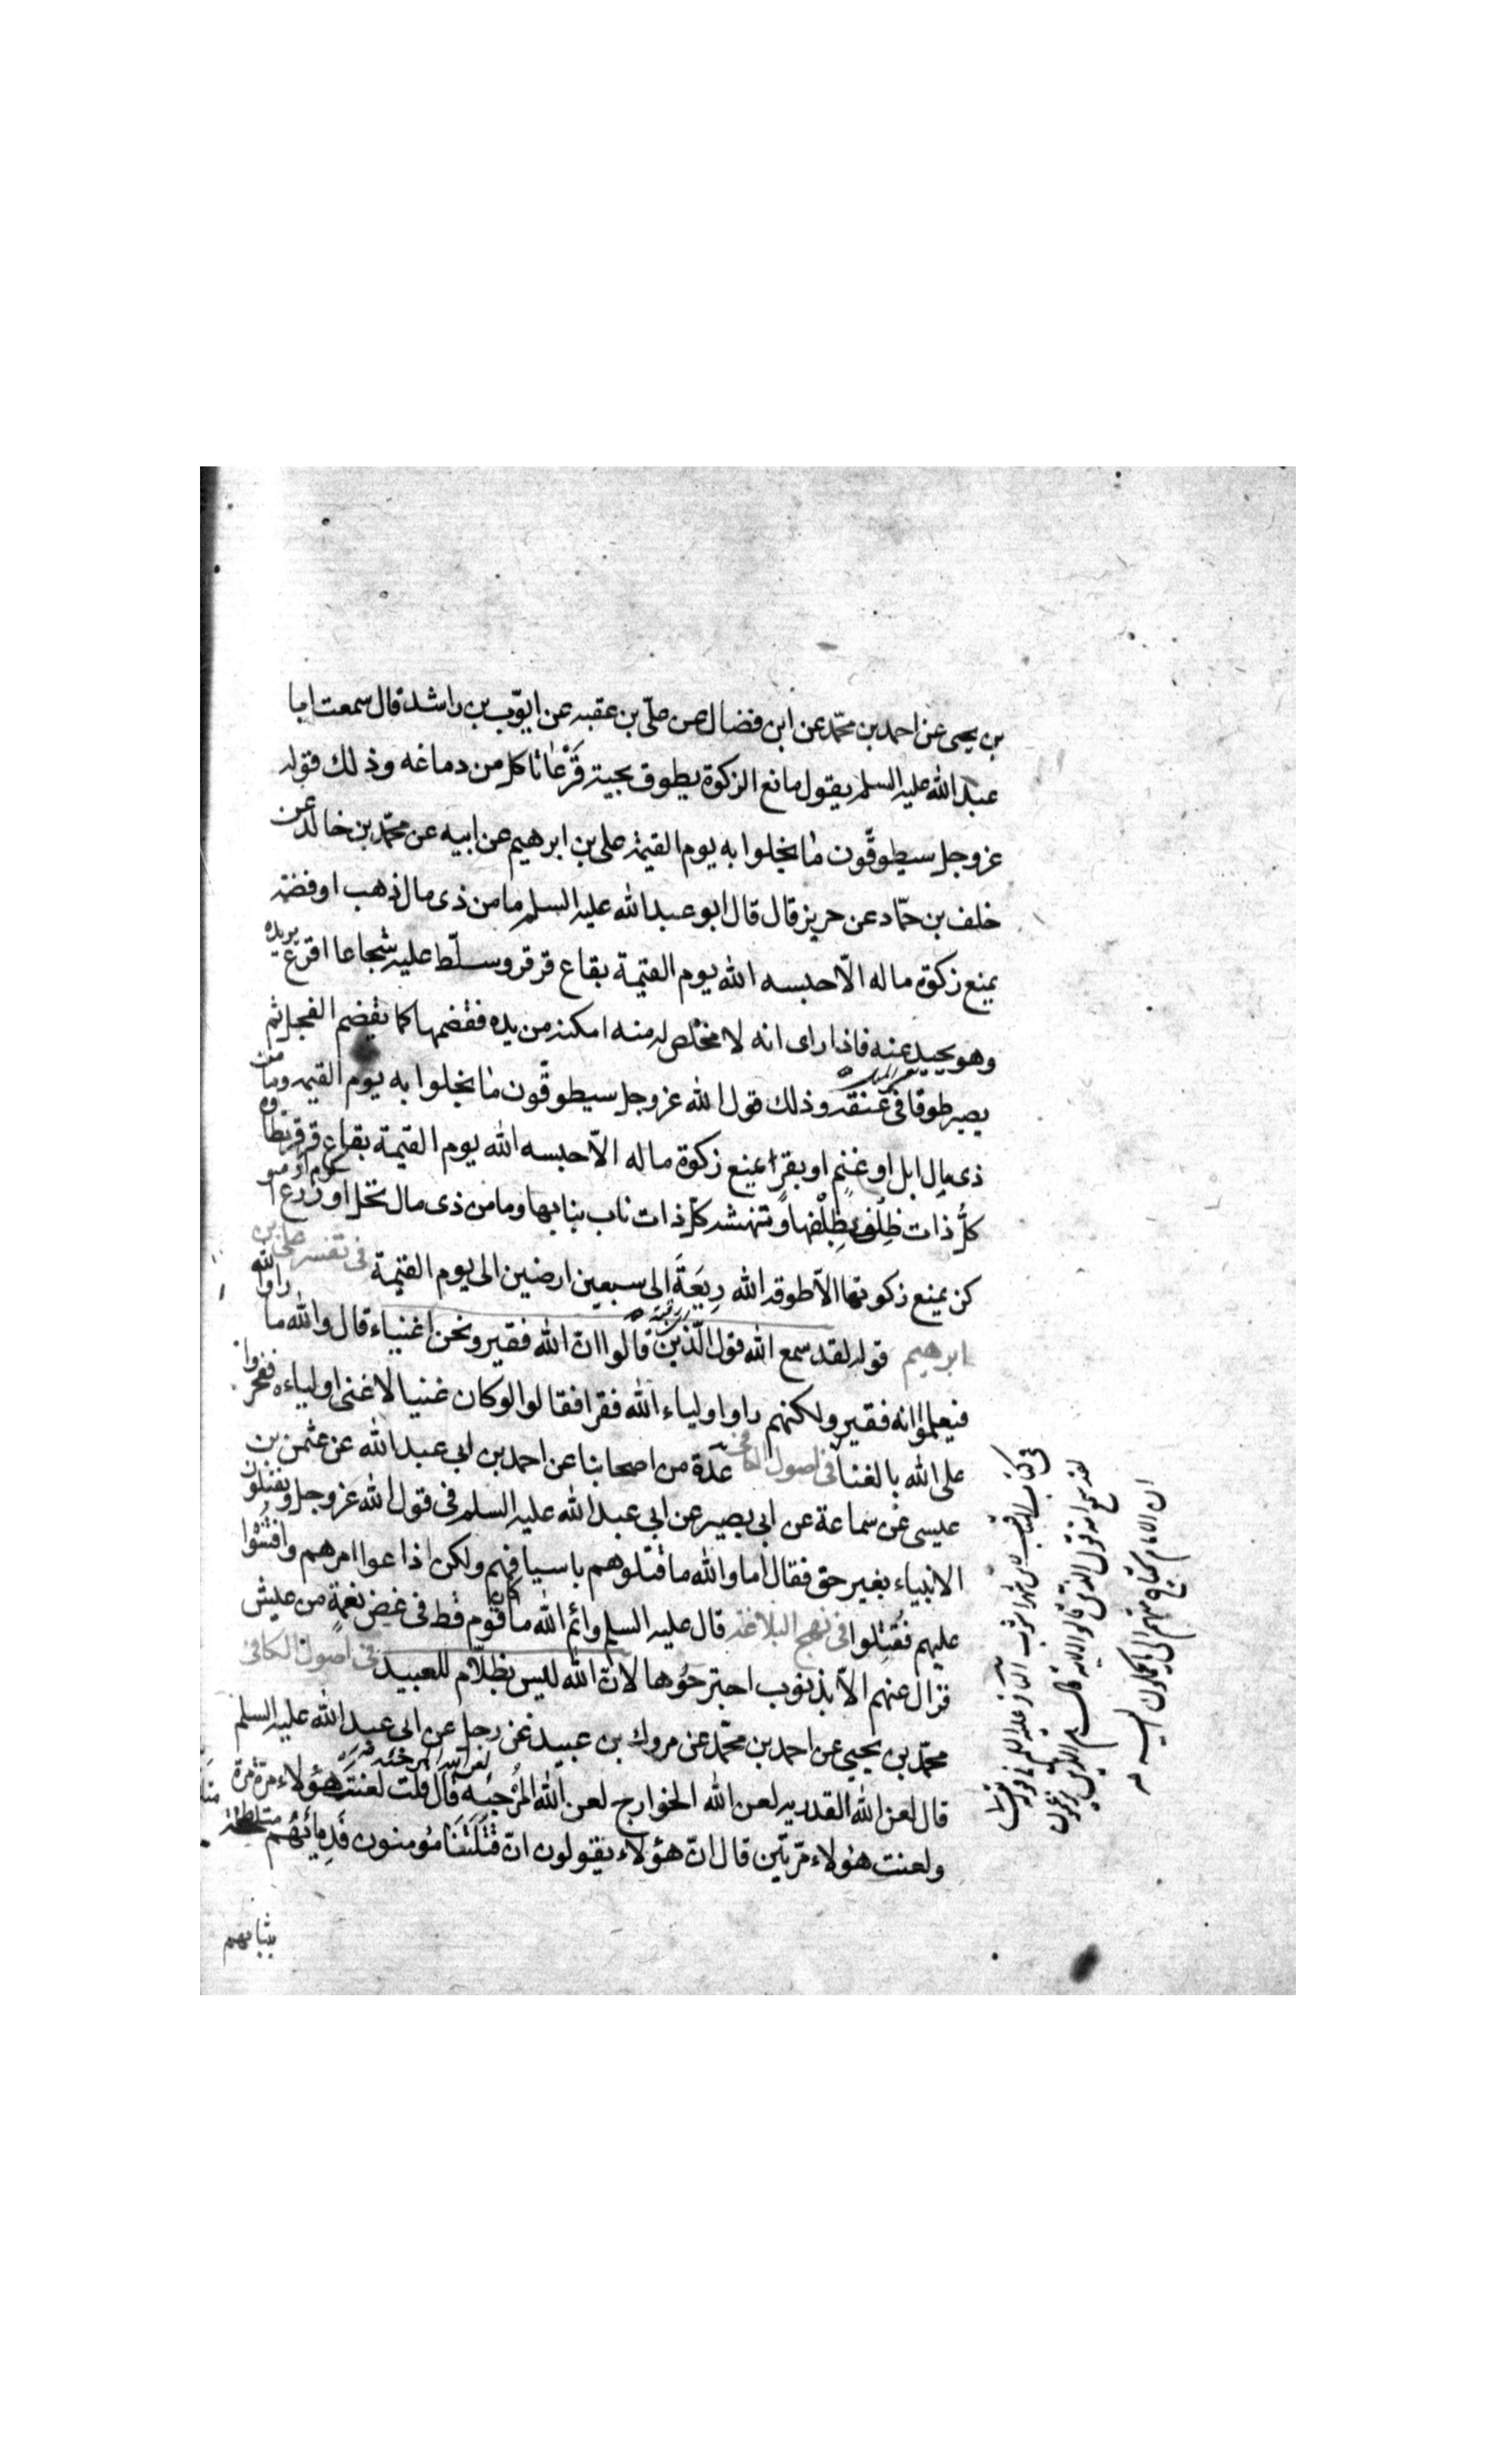 بن يحيى عن احمد بن محمّد عن ابن فضال عن علىّ بن عقبه عن ايّوب بن راشد قال سمعت ابا
عبد الله عليه السلم يقول مانع الزكوة يطوق بحية قَرْعٰا تاكل من دماغه وذلك قوله
عزوجل سيطوقّون مٰا بخلوا به يوم القيمة على بن ابرهيم عن ابيه عن محمّد بن خالد عن
خلف بن حمّاد عن حريز قال قال ابو عبد الله عليه السلم ما من ذى مال ذهب او فضة
يمنع زكوة ماله الّا حبسه الله يوم القيمة بقاع قرقر وسلّط عليه شجاعا اقرع يريده
وهو يحيد عنه فاذا راى انه لا مخلص له منه امكنه من يده فقضمها كما يقضم الفجل ثم
يصير طوقا فى عنقه وذلك قول الله عزوجل سيطوقّون مٰا بخلوا به يوم القيمه وما من
ذى مال ابل او غنم او بقر يمنع زكوة ماله الّا حبسه الله يوم القيمة بقاع قرقر يطاوه
كلُّ ذات ظِلْف بِظِلْفها وتنهشه كلّ ذات ناب بنابها وما من ذى مال نخل او زرع او كرم
يمنع زكوتها الّا طوقه الله رِيعَةَ الى سبعين ارضين الى يوم القيمة فى تفسير على بن
ابرهيم قوله لقد سمع الله قول الّذين قالوا انّ الله فقير ونحن اغنياء قال والله ما راوا الله
فيعلموا انه فقير ولكنهم راوا اولياء الله فقرا فقالوا لو كان غنيا لاغنى اولياءه ففخروا
على الله بالغنا فى اصول الكافى عدّة من اصحابنا عن احمد بن ابى عبد الله عن عثمن بن
عيسى عن سماعة عن ابى بصير عن ابى عبد الله عليه السلم فى قول الله عزوجل ويقتلون
الانبياء بغير حق فقال اما والله ما قتلوهم باسيافهم ولكن اذاعوا امرهم وافشوا
عليهم فقُتِلوا فى نهج البلاغة قال عليه السلم وائم الله ما كان قوم قط فى غض نعمةٍ من عيش
فزال عنهم الّا بذنوب اجترحُوها لانّ الله ليس بظلّام للعبيد فى اصول الكافى
محمّد بن يحيى عن احمد بن محمّد عن مروك بن عبيد عن رجل عن ابى عبد الله عليه السلم
قال لعن الله القدريه لعن الله الخوارج لعن الله المُرجئه لعن الله المرجئه قال قلت لعنتَ هؤلاء مرّة مرة
ولعنت هؤلاء مرّتين قال انّ هؤلاء يقولون انّ قَتَلَتَنَا مُومنون فَدِمائُهُم متلطخة
بثيابهم
فى كتاب المناقب لابن شهراشوب عليه السلم فى قوله
لقد سمع الله قول الذين قالوا الايه قال هم الذين يزعمون
ان الامام يحتاج منهم الى ما يحملون اليه